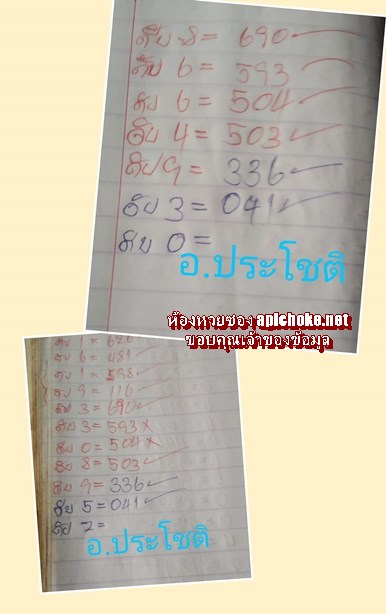 ดับ 8 = 690
ดับ 6 = 593
ดับ 6 = 504
ดับ 4 = 503
ดับ 9 = 336
ดับ 3 = 041
ดับ 0 =
อ.ประโชติ
ห้องหวยซอง apichoke.net
ขอบคุณเจ้าของข้อมูล
ดับ 1 = 620
ดับ 6 = 481
ดับ 1 = 598
ดับ 9 = 116
ดับ 3 = 690
ดับ 3 = 593 x
ดับ 0 = 504 x
ดับ 8 = 503
ดับ 9 = 336
ดับ 5 = 041
ดับ 7 =
อ.ประโชติ